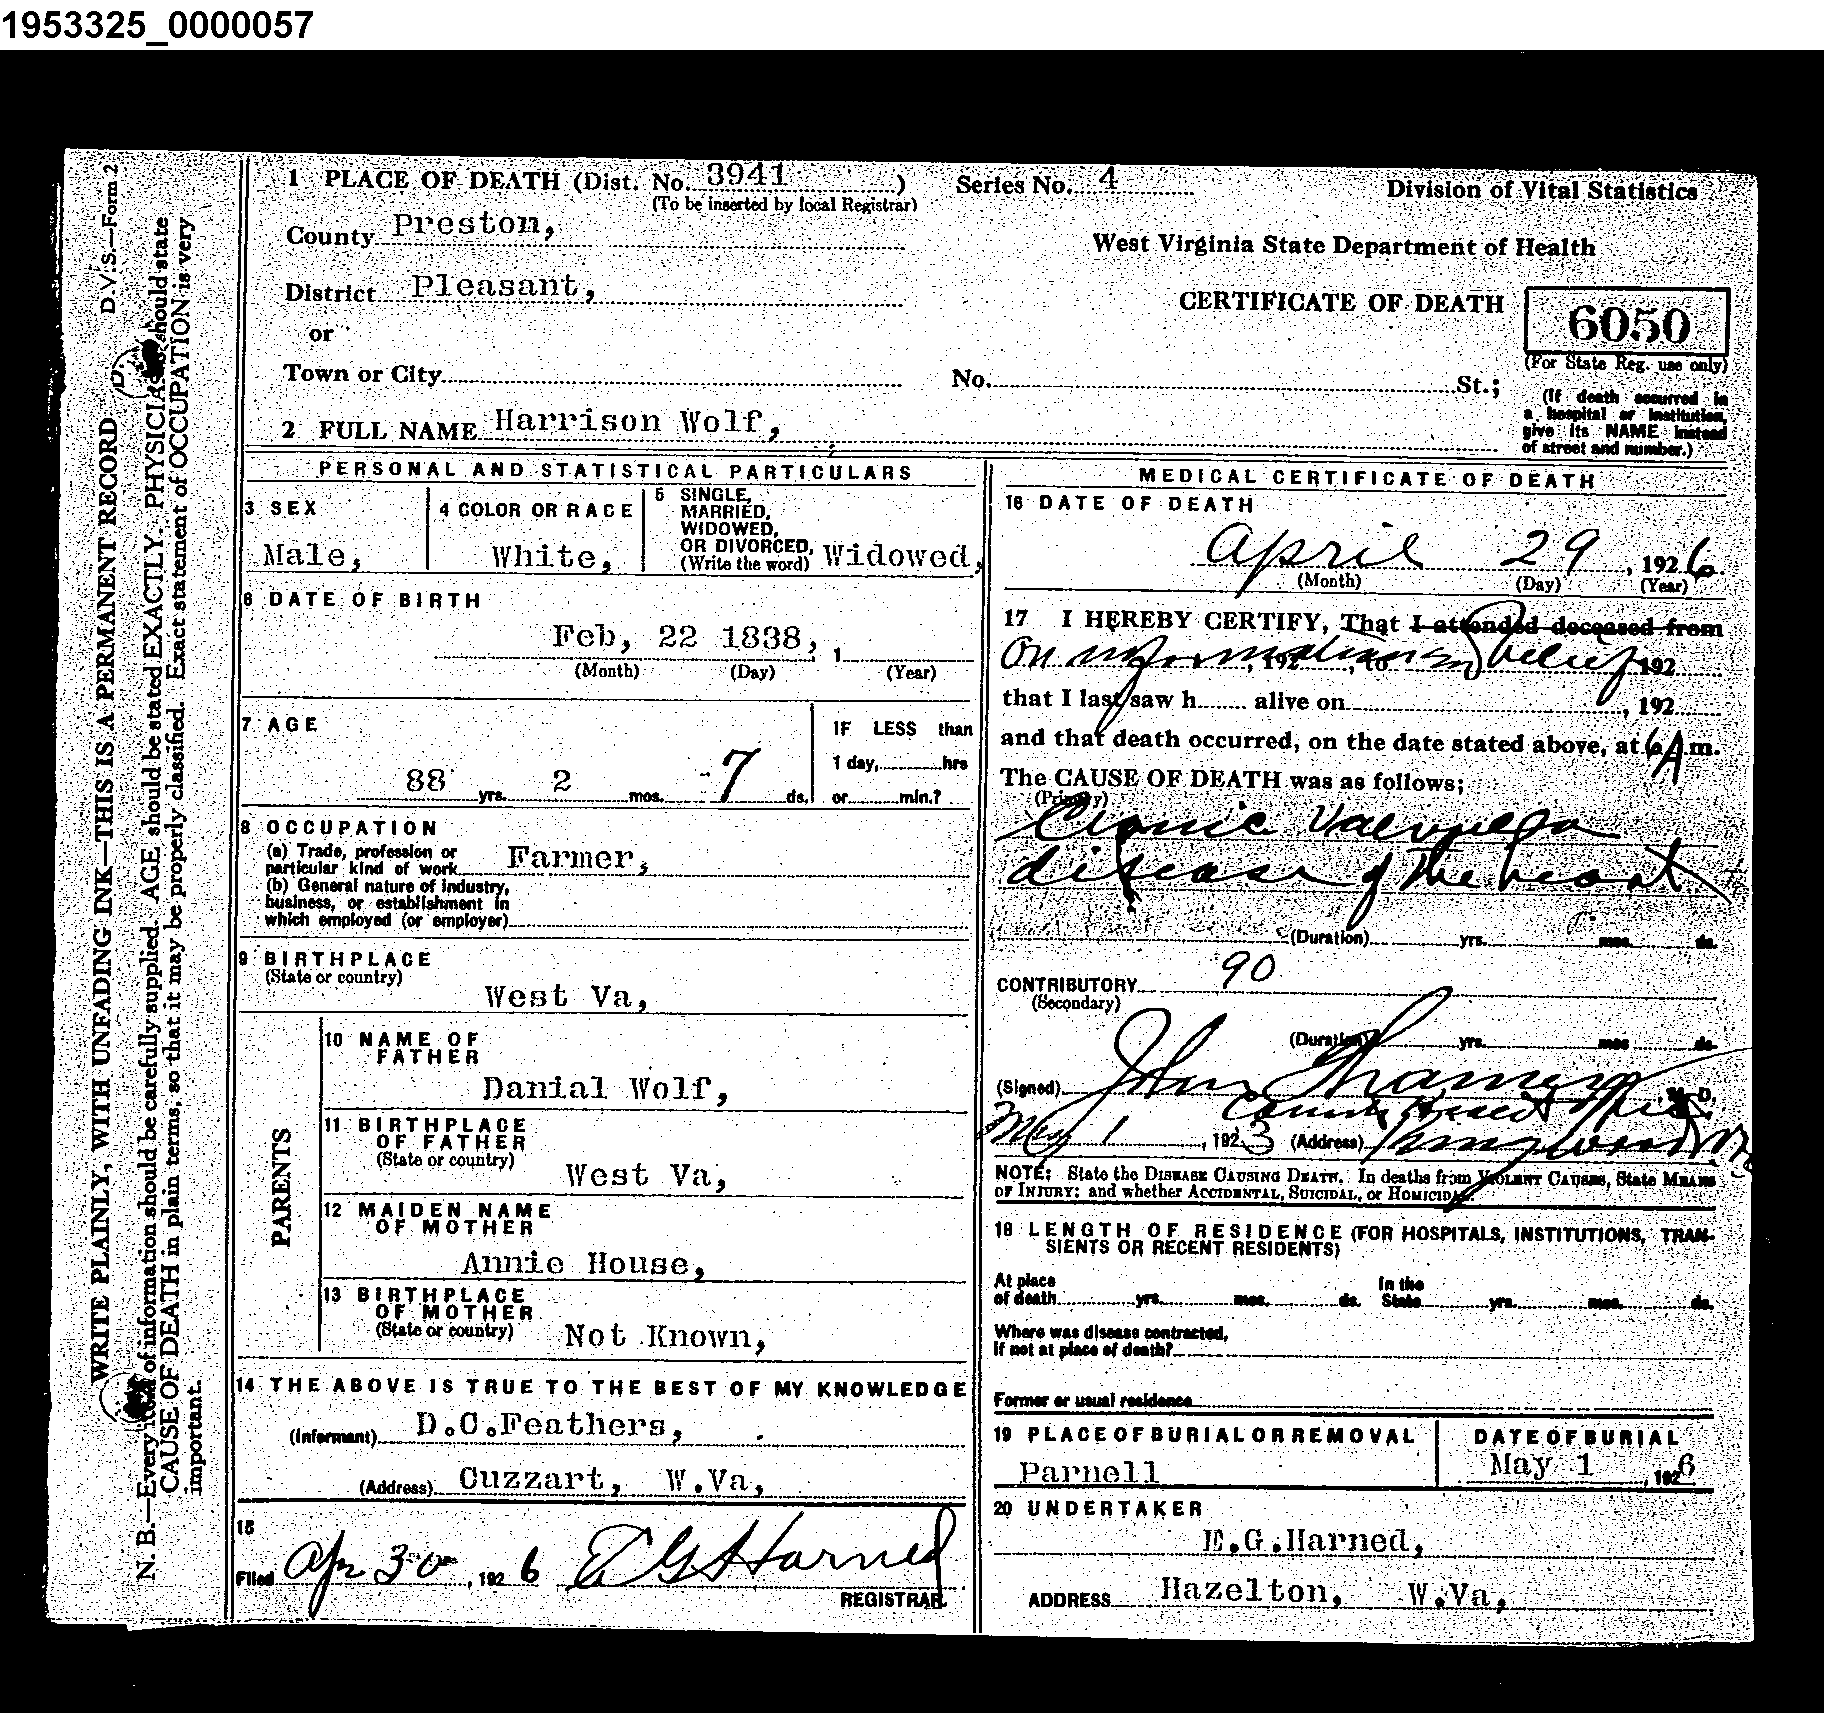 1953325_0000057
1 PLACE OF DEATH (Dist. No. 3941 ) Series No. 4 Division of Vital Statistics
(To be inserted by local Registrar)
County Preston,
West Virginia State Department of Health
District Pleasant,
CERTIFICATE OF DEATH
6050
(For State Reg. use only)
or
Town or City No. St.;
(If death occurred in
a hospital or institution,
give its NAME instead
of street and number.)
2 FULL NAME Harrison Wolf,
PERSONAL AND STATISTICAL PARTICULARS
3 SEX
Male,
4 COLOR OR RACE
White,
5 SINGLE,
MARRIED,
WIDOWED,
OR DIVORCED,
(Write the word) Widowed,
6 DATE OF BIRTH
Feb, 22 1838, 1
(Month) (Day) (Year)
7 AGE
88 yrs. 2 mos. 7 ds.
IF LESS than
1 day, hrs
or min.?
8 OCCUPATION
(a) Trade, profession or
particular kind of work Farmer,
(b) General nature of industry,
business, or establishment in
which employed (or employer)
9 BIRTHPLACE
(State or country)
West Va,
PARENTS
10 NAME OF
FATHER
Danial Wolf,
11 BIRTHPLACE
OF FATHER
(State or country) West Va,
12 MAIDEN NAME
OF MOTHER
Annie House,
13 BIRTHPLACE
OF MOTHER
(State or country) Not Known,
14 THE ABOVE IS TRUE TO THE BEST OF MY KNOWLEDGE
(Informant) D.C.Feathers,
(Address) Cuzzart, W.Va,
15
Filed Apr 30, 1926 E G Harned
REGISTRAR
MEDICAL CERTIFICATE OF DEATH
16 DATE OF DEATH
April 29, 1926
(Month) (Day) (Year)
17 I HEREBY CERTIFY, That I attended deceased from
On information & belief, 192 , to 192
that I last saw h alive on , 192
and that death occurred, on the date stated above, at 6 A m.
The CAUSE OF DEATH was as follows;
(Primary)
disease of the heart
(Duration) yrs. mos. ds.
CONTRIBUTORY 90
(Secondary)
(Duration) yrs. mos ds.
(Signed) John M. D.
County
May 1, 1923 (Address) Kingwood
NOTE: State the DISEASE CAUSING DEATH. In deaths from VIOLENT CAUSES, State MEANS
OF INJURY; and whether ACCIDENTAL, SUICIDAL, or HOMICIDAL.
18 LENGTH OF RESIDENCE (FOR HOSPITALS, INSTITUTIONS, TRAN-
SIENTS OR RECENT RESIDENTS)
At place In the
of death yrs. mos. ds. State yrs. mos. ds.
Where was disease contracted,
If not at place of death?
Former or usual residence
19 PLACE OF BURIAL OR REMOVAL
Parnell
DATE OF BURIAL
May 1, 1926
20 UNDERTAKER
E.G.Harned,
ADDRESS Hazelton, W.Va,
D.V.S.—Form 2
WRITE PLAINLY, WITH UNFADING INK—THIS IS A PERMANENT RECORD
N. B.—Every item of information should be carefully supplied. AGE should be stated EXACTLY. PHYSICIANS should state
CAUSE OF DEATH in plain terms, so that it may be properly classified. Exact statement of OCCUPATION is very
important.